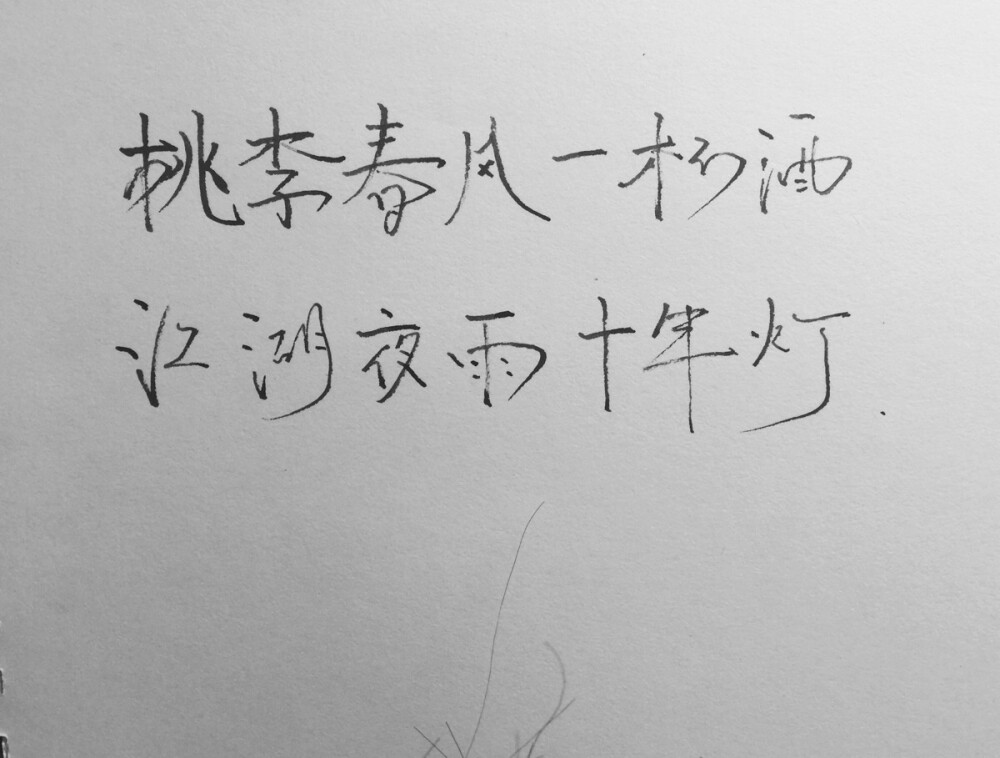 桃李春风一杯酒
江湖夜雨十年灯.